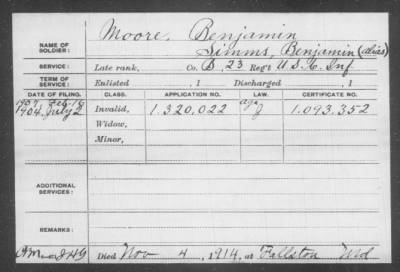 Moore, Benjamin
NAME OF SOLDIER: Simms, Benjamin (alias)
SERVICE: Late rank, Co. B, 23 Reg't U.S.C. Inf
TERM OF SERVICE: Enlisted , 1 Discharged , 1
DATE OF FILING. CLASS. APPLICATION NO. LAW. CERTIFICATE NO.
1904. July 2 Invalid, 1.320.022 age 1.093.352
Widow,
Minor,
ADDITIONAL SERVICES:
REMARKS:
Died Nov 4, 1914, at Fallston Md